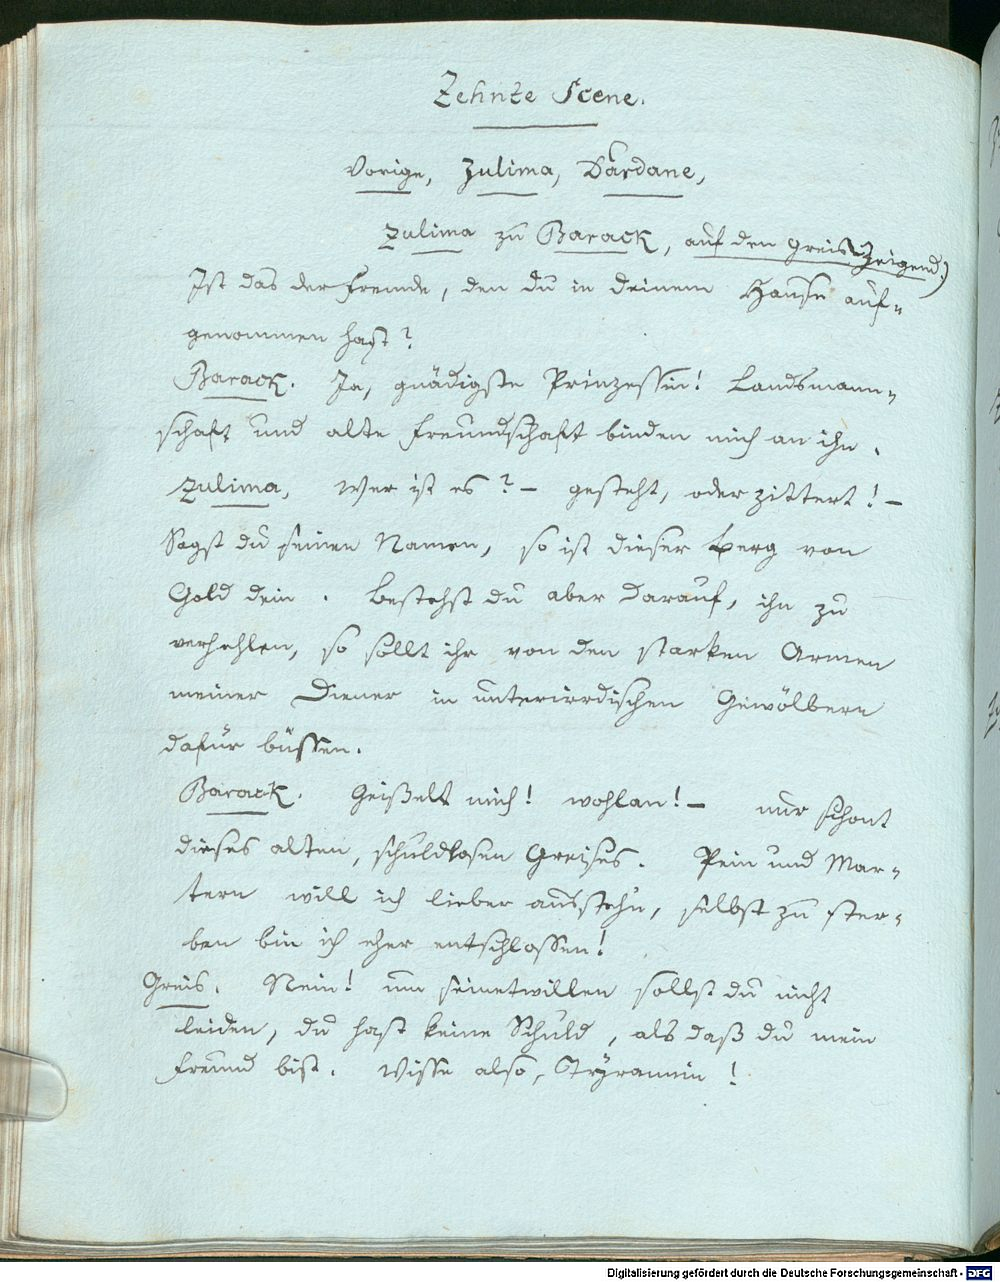 Zehnte Scene.
Vorige, Zulima, Dardane,
Zulima zu Barack, auf den Greis zeigend)
Ist das der Fremde, den du in deinem Hause auf-
genommen hast?
Barack. Ja, gnädigste Prinzessin! Landsmann-
schaft und alte Freundschaft binden mich an ihn.
Zulima, Wer ist es? – gesteht, oder zittert! –
Sagst du seinen Namen, so ist dieser Berg von
Gold dein. Bestehst du aber darauf, ihn zu
verhehlen, so sollt ihr von den starken Armen
meiner Diener in unterirrdischen Gewölbern
dafür büssen.
Barack. Geißelt mich! wohlan! – nur schont
dieses alten, schuldlosen Greises. Pein und Mar-
tern will ich lieber ausstehn, selbst zu ster-
ben bin ich eher entschlossen!
Greis. Nein! um seinetwillen sollst du nicht
leiden, du hast keine Schuld, als daß du mein
Freund bist. Wisse also, Tyrannin!
Digitalisierung gefördert durch die Deutsche Forschungsgemeinschaft - DFG